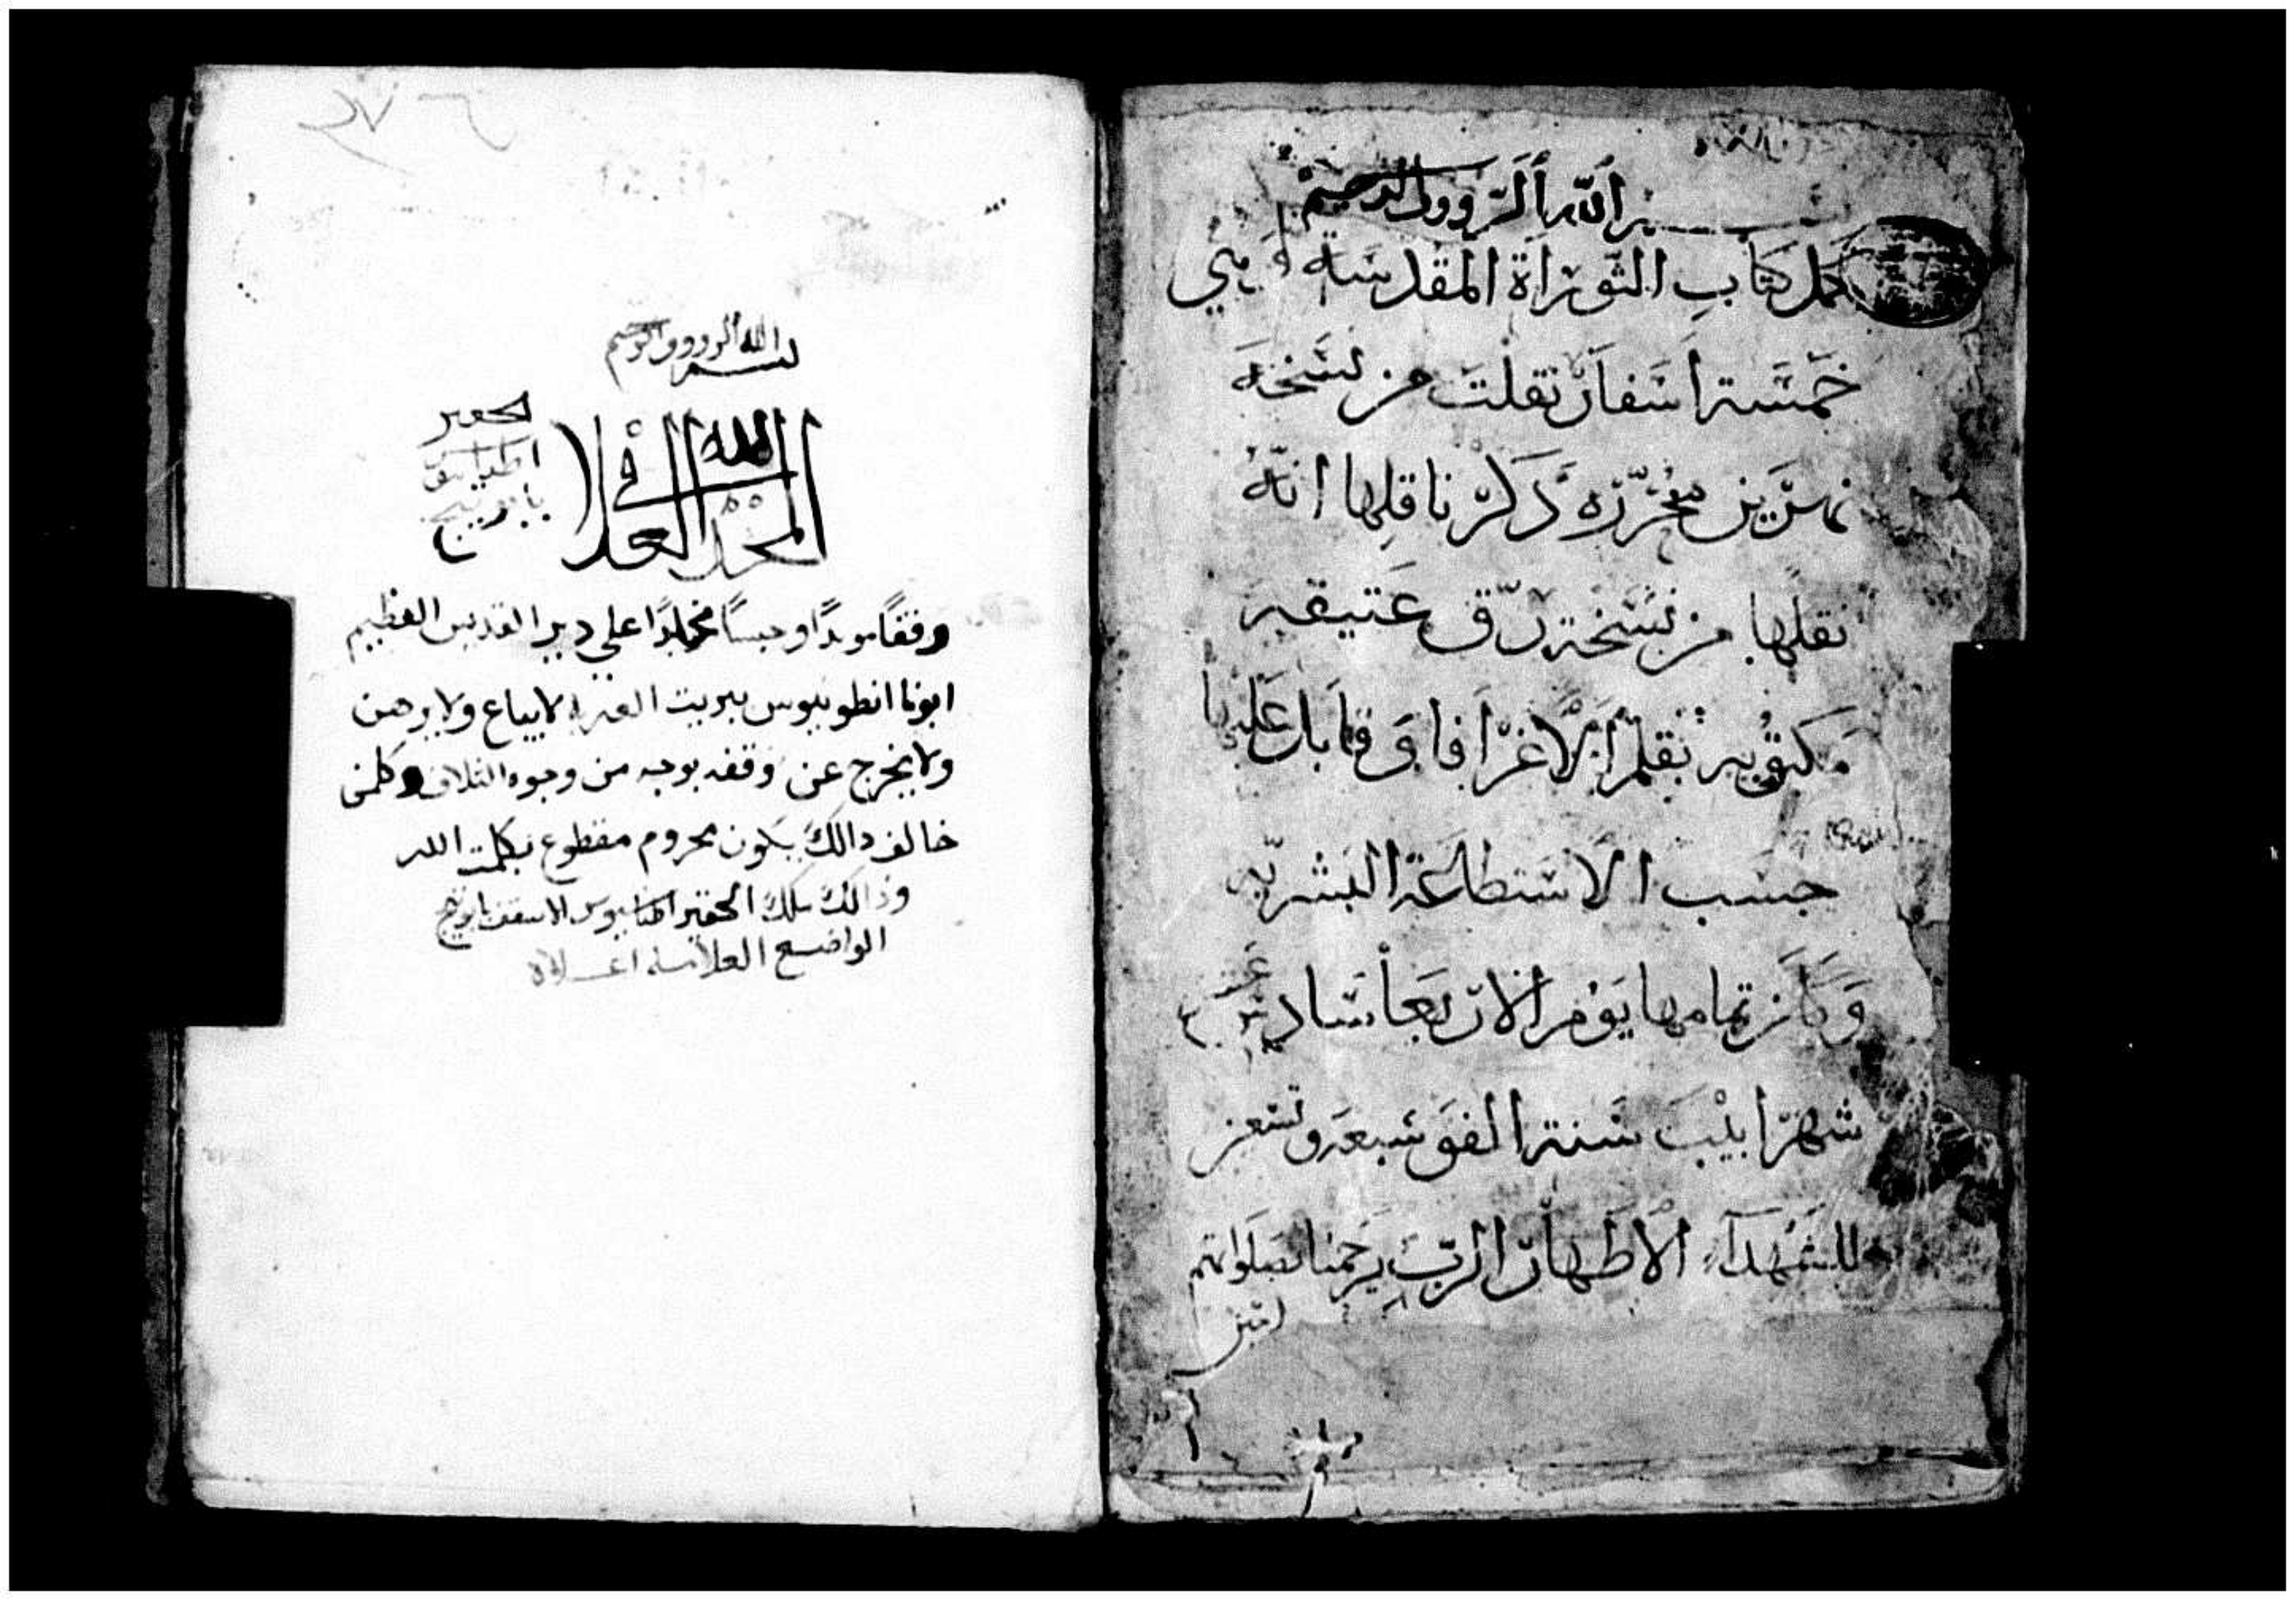 بسم الله الرووف الرحيم
كمل كتاب التوراة المقدسة وهي
خمسة اسفار نقلت من نسخة
محرره ذكر ناقلها انه
نقلها من نسخة رق عتيقه
مكتوبه بقلم وقابل عليها
حسب الاستطاعة البشريه
وكان تمامها يوم الاربعا سادس عشر
شهر ابيب سنة الف وسبعه وتسعين
للشهداء الاطهار الرب يرحمنا بصلواتهم
امين
بسم الله الرووف الرحيم
الحقير
المجد لله في العلا
وقفًا موبدًا وحبسًا مخلدًا علي دير القديس العظيم
ابونا انطونيوس ببرية العربه لا يباع ولا يرهن
ولا يخرج عن وقفه بوجه من وجوه التلاف وكلمن
خالف دالك يكون محروم مقطوع بكلمت الله
ودالك الحقير الاسقف
الواضع العلامه اعلاه